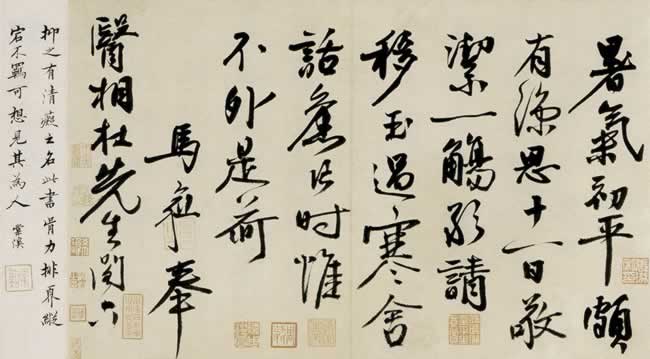 暑氣初平頗
有涼思十一日敬
潔一觴敢請
移玉過寒舍
話舊片时惟
不外是荷
馬愈奉
醫相杜先生閣下
抑之有清癡之名此書骨力排奡縱
宕不羈可想見其為人 溪